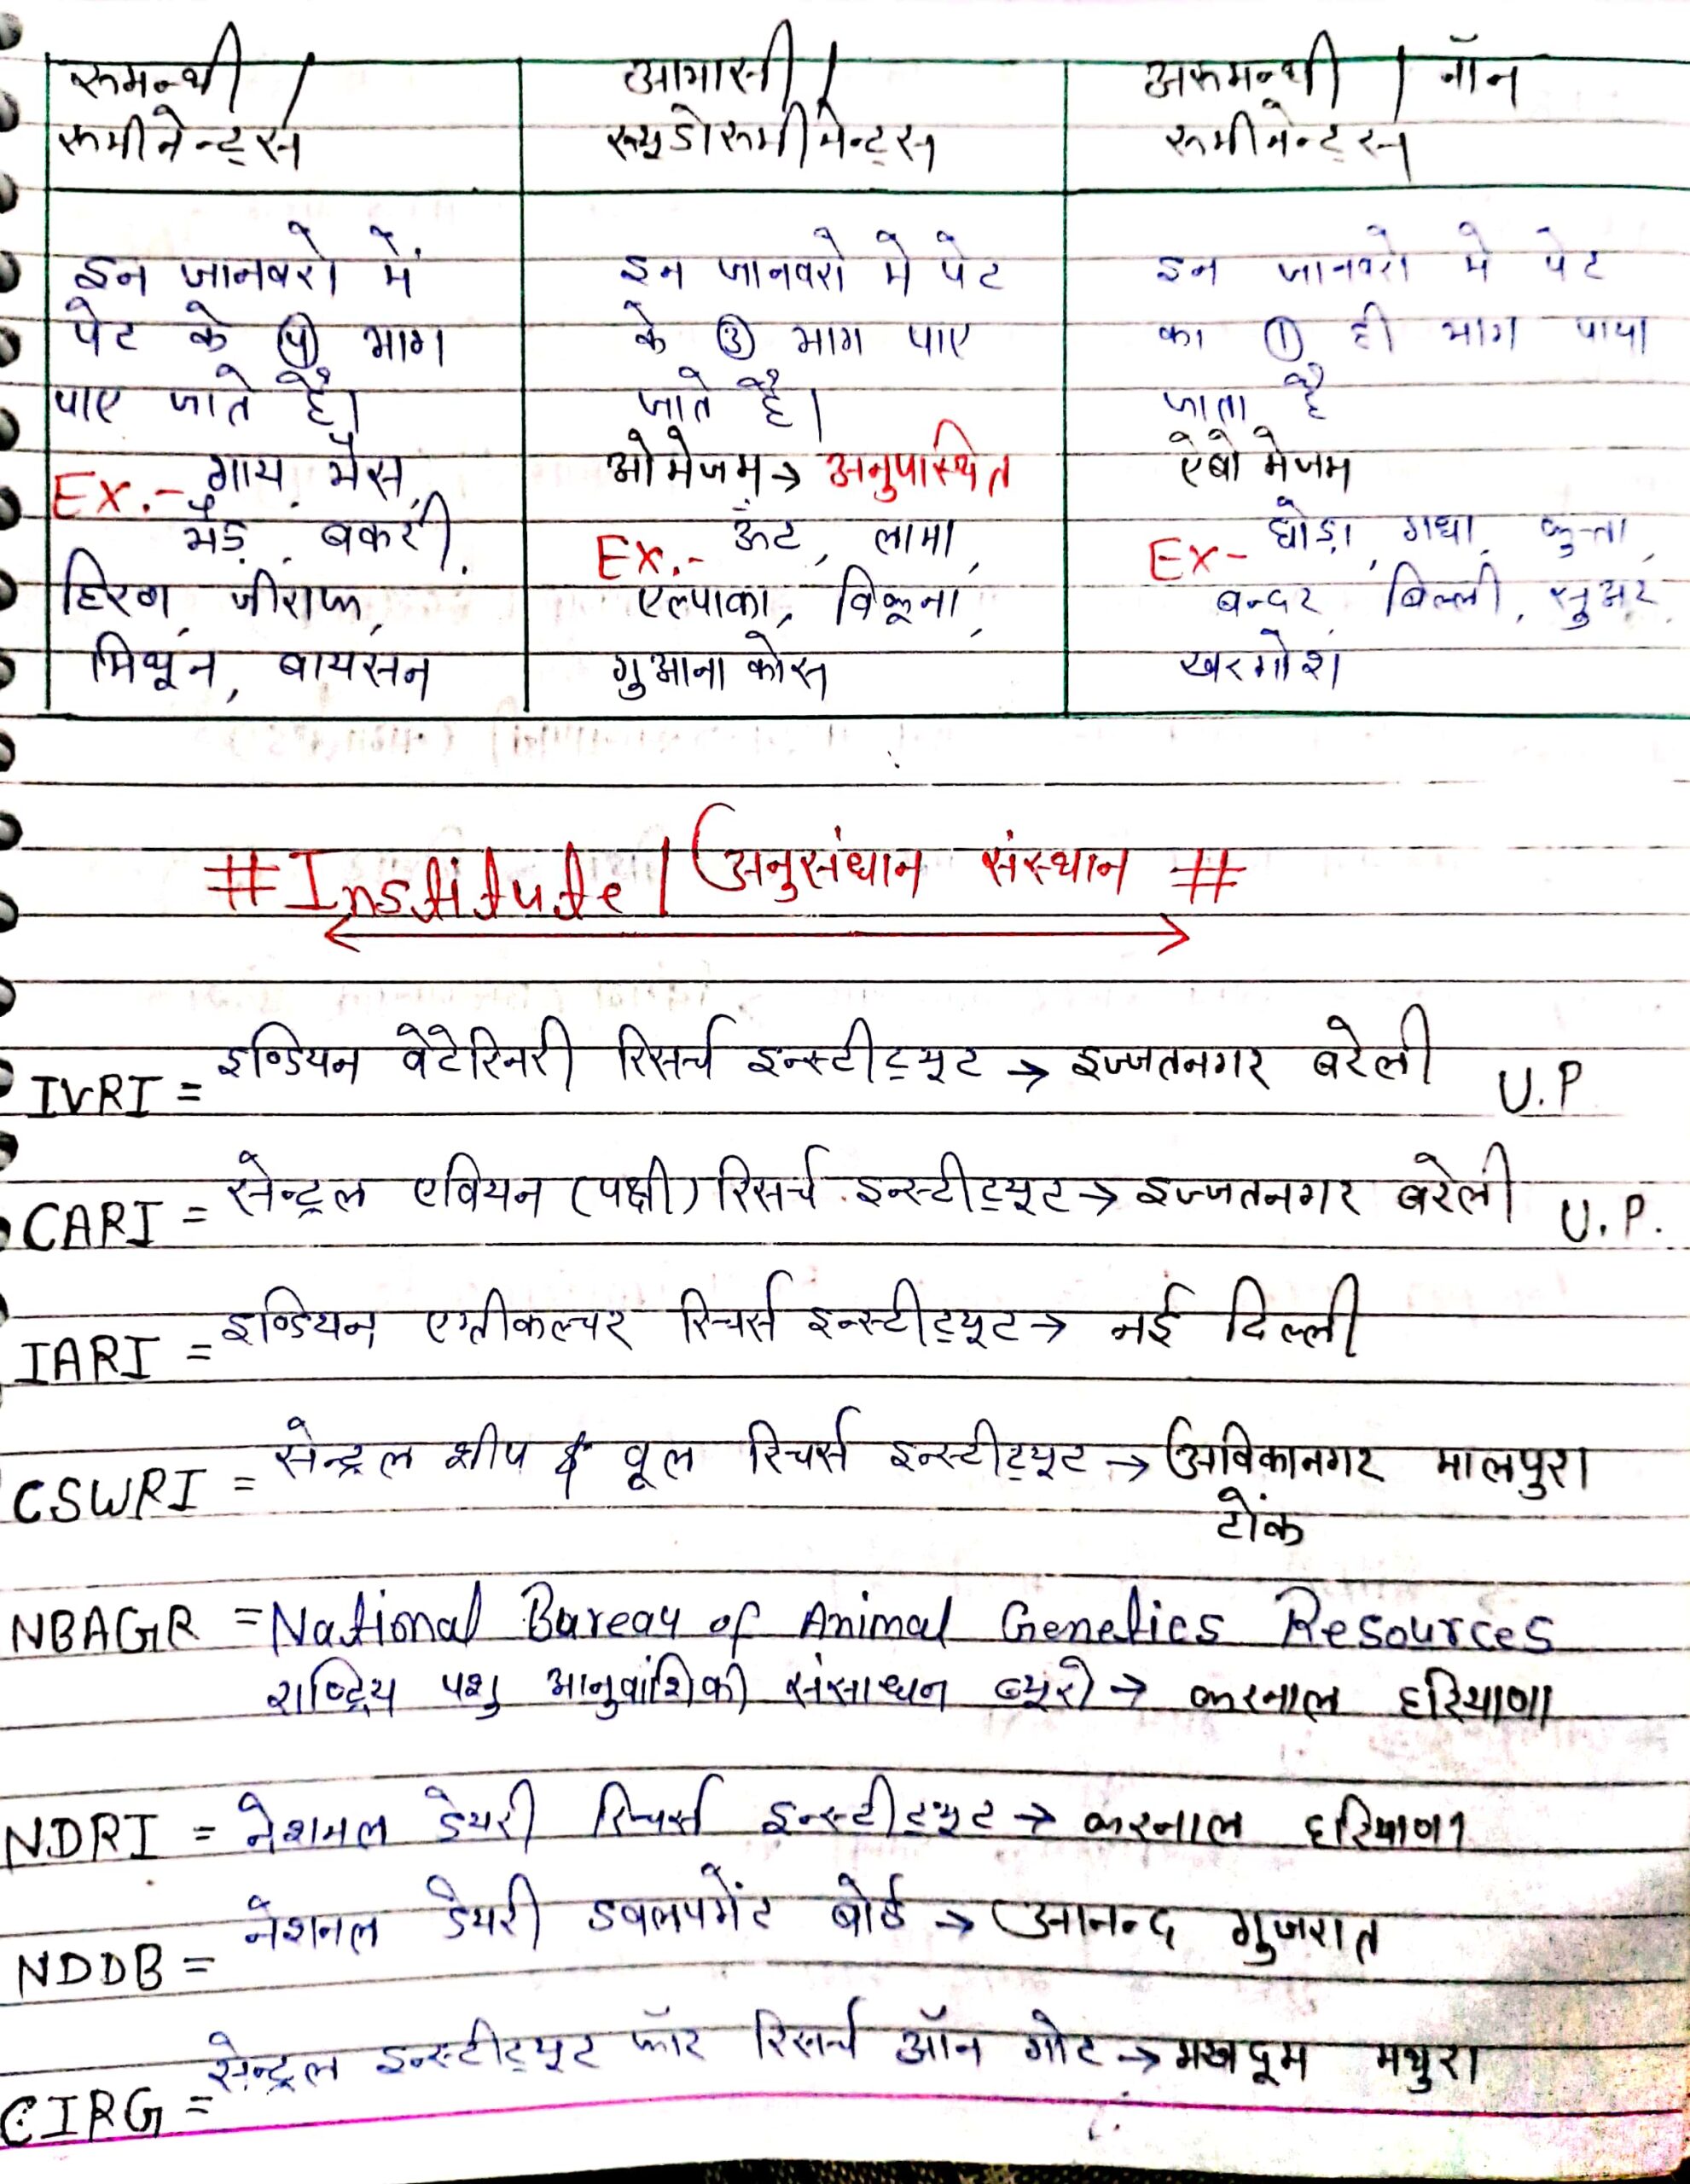 रूमन्थी /
रूमीनेन्ट्स
इन जानवरो में
पेट के ④ भाग
पाए जाते है।
Ex.- गाय, भैस,
भेड़, बकरी,
हिरण, जीराफ,
मिथून, बायसन
आभासी /
स्यूडोरूमीनेन्ट्स
इन जानवरो मे पेट
के ③ भाग पाए
जाते है।
ओमेजम → अनुपास्थित
Ex.- ऊँट, लामा,
एल्पाका, विकूना,
गुआना कोस
अरूमन्थी / नॉन
रूमीनेन्ट्स
इन जानवरो मे पेट
का ① ही भाग पाया
जाता है
ऐबोमेजम
Ex- घोड़ा, गधा, कुत्ता,
बन्दर बिल्ली, सुअर,
खरगोश
# Institute / अनुसंधान संस्थान #
IVRI = इण्डियन वेटेरिनरी रिसर्च इन्स्टीट्यूट → इज्जतनगर बरेली U.P
CARI = सेन्ट्रल एवियन (पक्षी) रिसर्च इन्स्टीट्यूट → इज्जतनगर बरेली U.P.
IARI = इण्डियन एग्रीकल्चर रिचर्स इन्स्टीट्यूट → नई दिल्ली
CSWRI = सेन्ट्रल शीप & वूल रिचर्स इन्स्टीट्यूट → अविकानगर मालपुरा
टोंक
NBAGR = National Bureau of Animal Genetics Resources
राष्ट्रिय पशु आनुवांशिकी संसाधन ब्यूरो → करनाल हरियाणा
NDRI = नेशनल डेयरी रिचर्स इन्स्टीट्यूट → करनाल हरियाणा
NDDB = नेशनल डेयरी डवलपमेंट बोर्ड → आनन्द गुजरात
CIRG = सेन्ट्रल इन्स्टीट्यूट फॉर रिसर्च ऑन गोट → मखदूम मथुरा